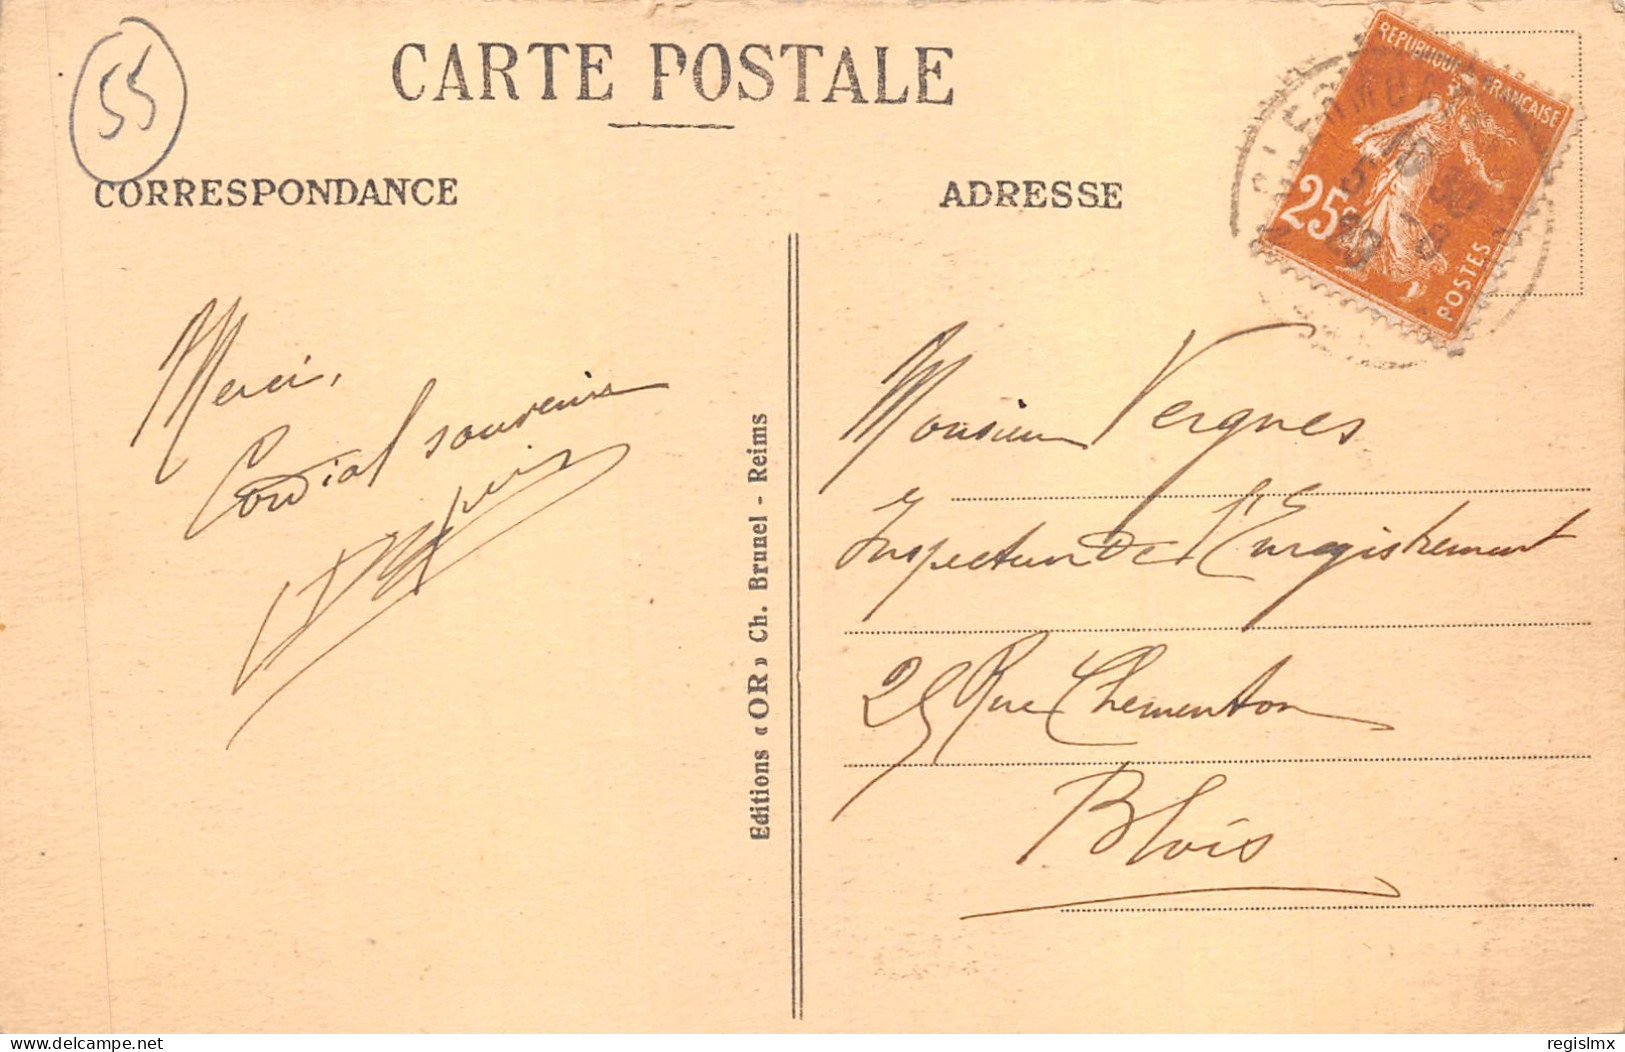 55
CARTE POSTALE
CORRESPONDANCE
ADRESSE
REPUBLIQUE FRANÇAISE
25c
POSTES
Merci,
Cordial souvenir
Editions « OR » Ch. Brunel - Reims
Monsieur Vergnes
Inspecteur De l'Enregistrement
25 Rue Chemonton
Blois
www.delcampe.net
regislmx